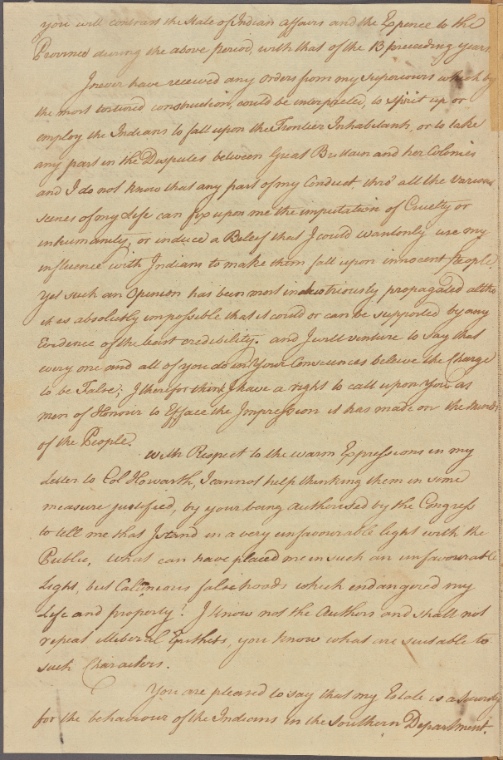 you will contrast the State of Indian affairs and the Expence to the
Province during the above period with that of the 13 preceeding years
I never have received any Orders from my Superiours which by
the most tortured construction, could be interpreted, to spirit up, or
employ the Indians to fall upon the Frontier Inhabitants, or to take
any part in the Disputes between Great Brittain and her Colonies
and I do not know that any part of my Conduct thro' all the various
scenes of my Life can fix upon me the imputation of Cruelty or
inhumanity, or induce a Beleef that I could wantonly use my
influence with Indians to make them fall upon innocent People
yet such an Opinion has been most industriously propagated altho
it is absolutely impossible that it could or can be supported by any
Evidence of the least credibility. and I will venture to say that
every one and all of you do in Your Consciences beleive the Charge
to be False; I therefor think I have a right to call upon You as
men of Honour to Efface the Impression it has made on the Minds
of the People.
With Respect to the warm Expressions in my
Letter to Col Howarth, I cannot help thinking them in some
measure justified, by your being authorised by the Congress
to tell me that I stand in a very unfavourable light with the
Public, what can have placed me in such an unfavourable
Light, but falsehoods which endangered my
Life and property! I know not the Authors and shall not
repeat illiberal Epithets, you know what are suitable to
such Characters.
You are pleased to say that my Estate is a Security
for the behaviour of the Indians in the Southern Department.